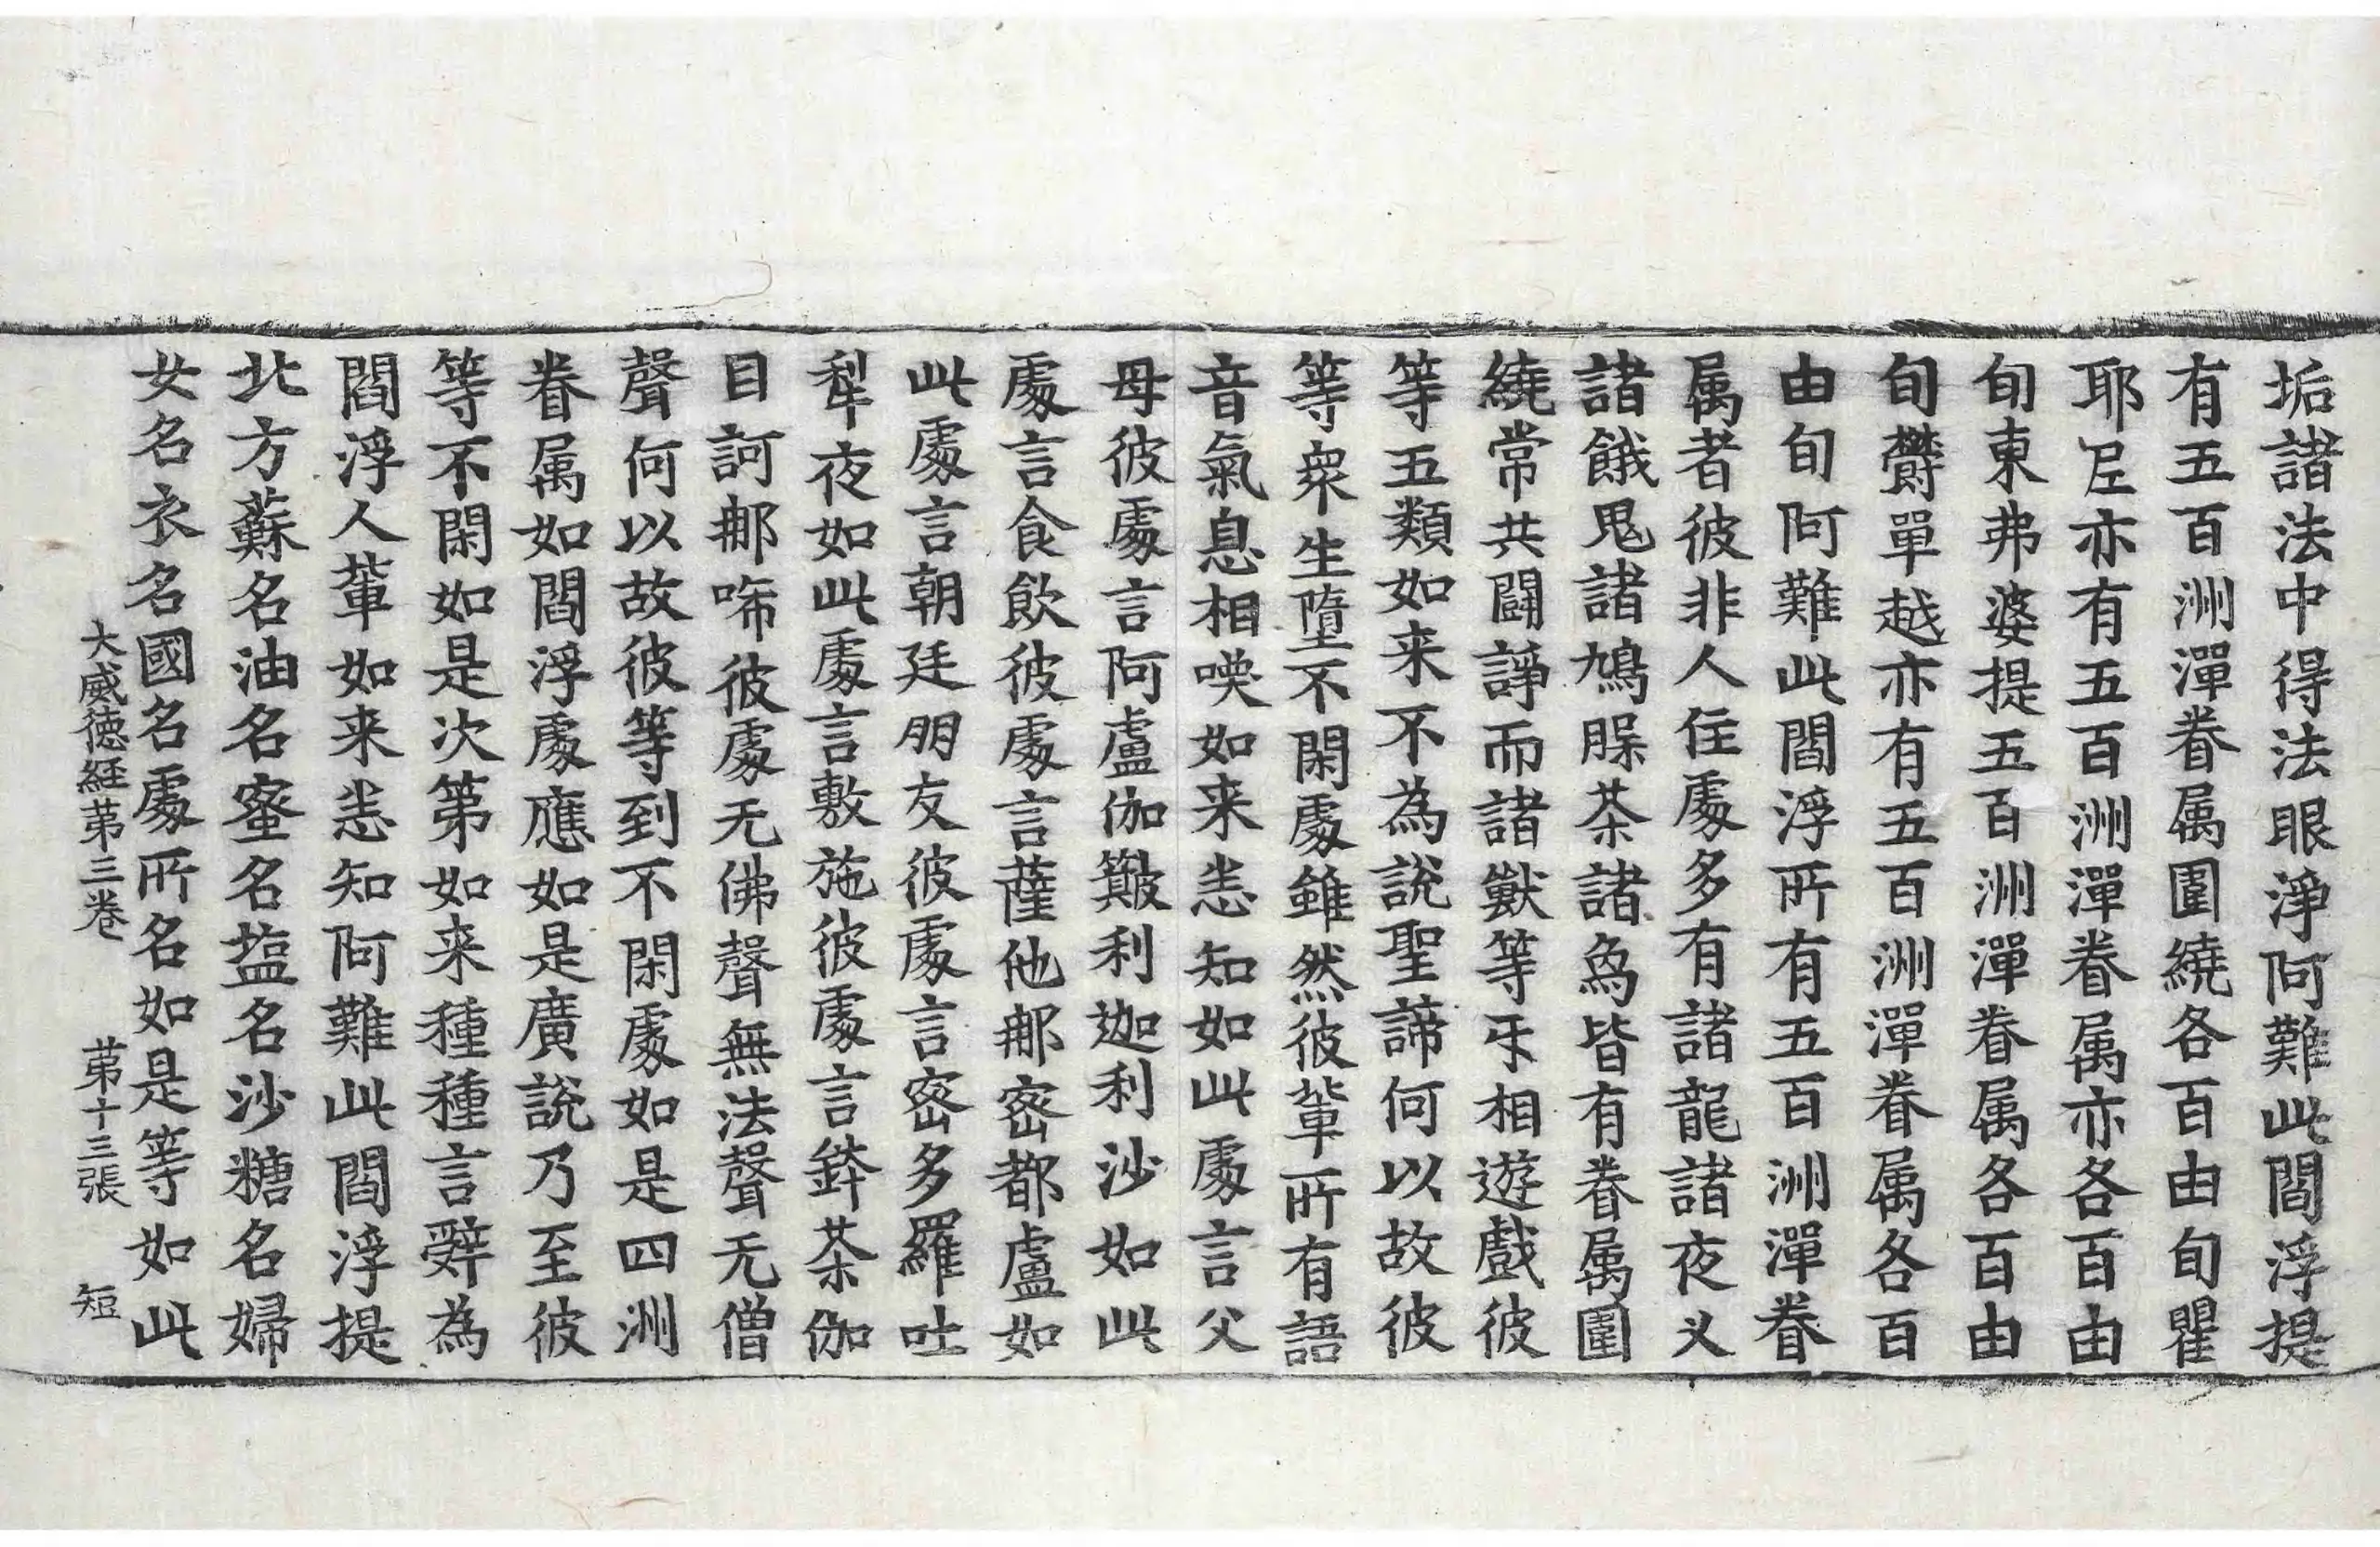 垢諸法中得法眼淨阿難此閻浮提
有五百洲潬眷属圍繞各百由旬瞿
耶𡰱亦有五百洲潬眷属亦各百由
旬東弗婆提五百洲潬眷属各百由
旬欝單越亦有五百洲潬眷属各百
由旬阿難此閻浮所有五百洲潬眷
属者彼非人住處多有諸龍諸夜叉
諸餓鬼諸鳩脲茶諸為皆有眷属圍
繞常共闘諍而諸獸等㸦相遊戲彼
等五類如来不為說聖諦何以故彼
等衆生墮不閑處雖然彼軰所有語
音氣息相㗛如来恙知如此處言父
母彼處言阿盧伽簸利迦利沙如此
處言食飲彼處言薩他𨚗密都盧如
此處言朝廷朋友彼處言密多羅吐
犂夜如此處言敷施彼處言鉾茶伽
目訶𨚗㖊彼處无佛聲無法聲无僧
聲何以故彼等到不閑處如是四洲
眷属如閻浮處應如是廣說乃至彼
等不閑如是次第如来種種言辭為
閻浮人軰如来恙知阿難此閻浮提
北方蘇名油名蜜名塩名沙糖名婦
女名衣名國名處所名如是等如此
大威徳経苐三卷 苐十三張 短